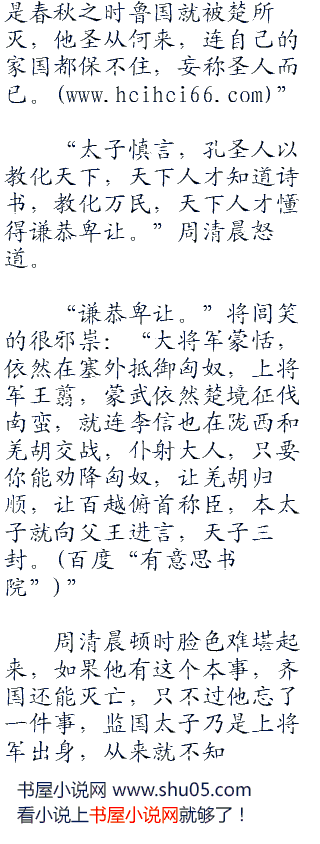 是春秋之时鲁国就被楚所
灭，他圣从何来，连自己的
家国都保不住，妄称圣人而
已。(www.hcihci66.com)”
“太子慎言，孔圣人以
教化天下，天下人才知道诗
书，教化万民，天下人才懂
得谦恭卑让。”周清晨怒
道。
“谦恭卑让。”将闾笑
的很邪祟：“大将军蒙恬，
依然在塞外抵御匈奴，上将
军王翦，蒙武依然楚境征伐
南蛮，就连李信也在陇西和
羌胡交战，仆射大人，只要
你能劝降匈奴，让羌胡归
顺，让百越俯首称臣，本太
子就向父王进言，天子三
封。(百度“有意思书
院”)”
周清晨顿时脸色难堪起
来，如果他有这个本事，齐
国还能灭亡，只不过他忘了
一件事，监国太子乃是上将
军出身，从来就不知
书屋小说网 www.shu05.com
看小说上书屋小说网就够了！